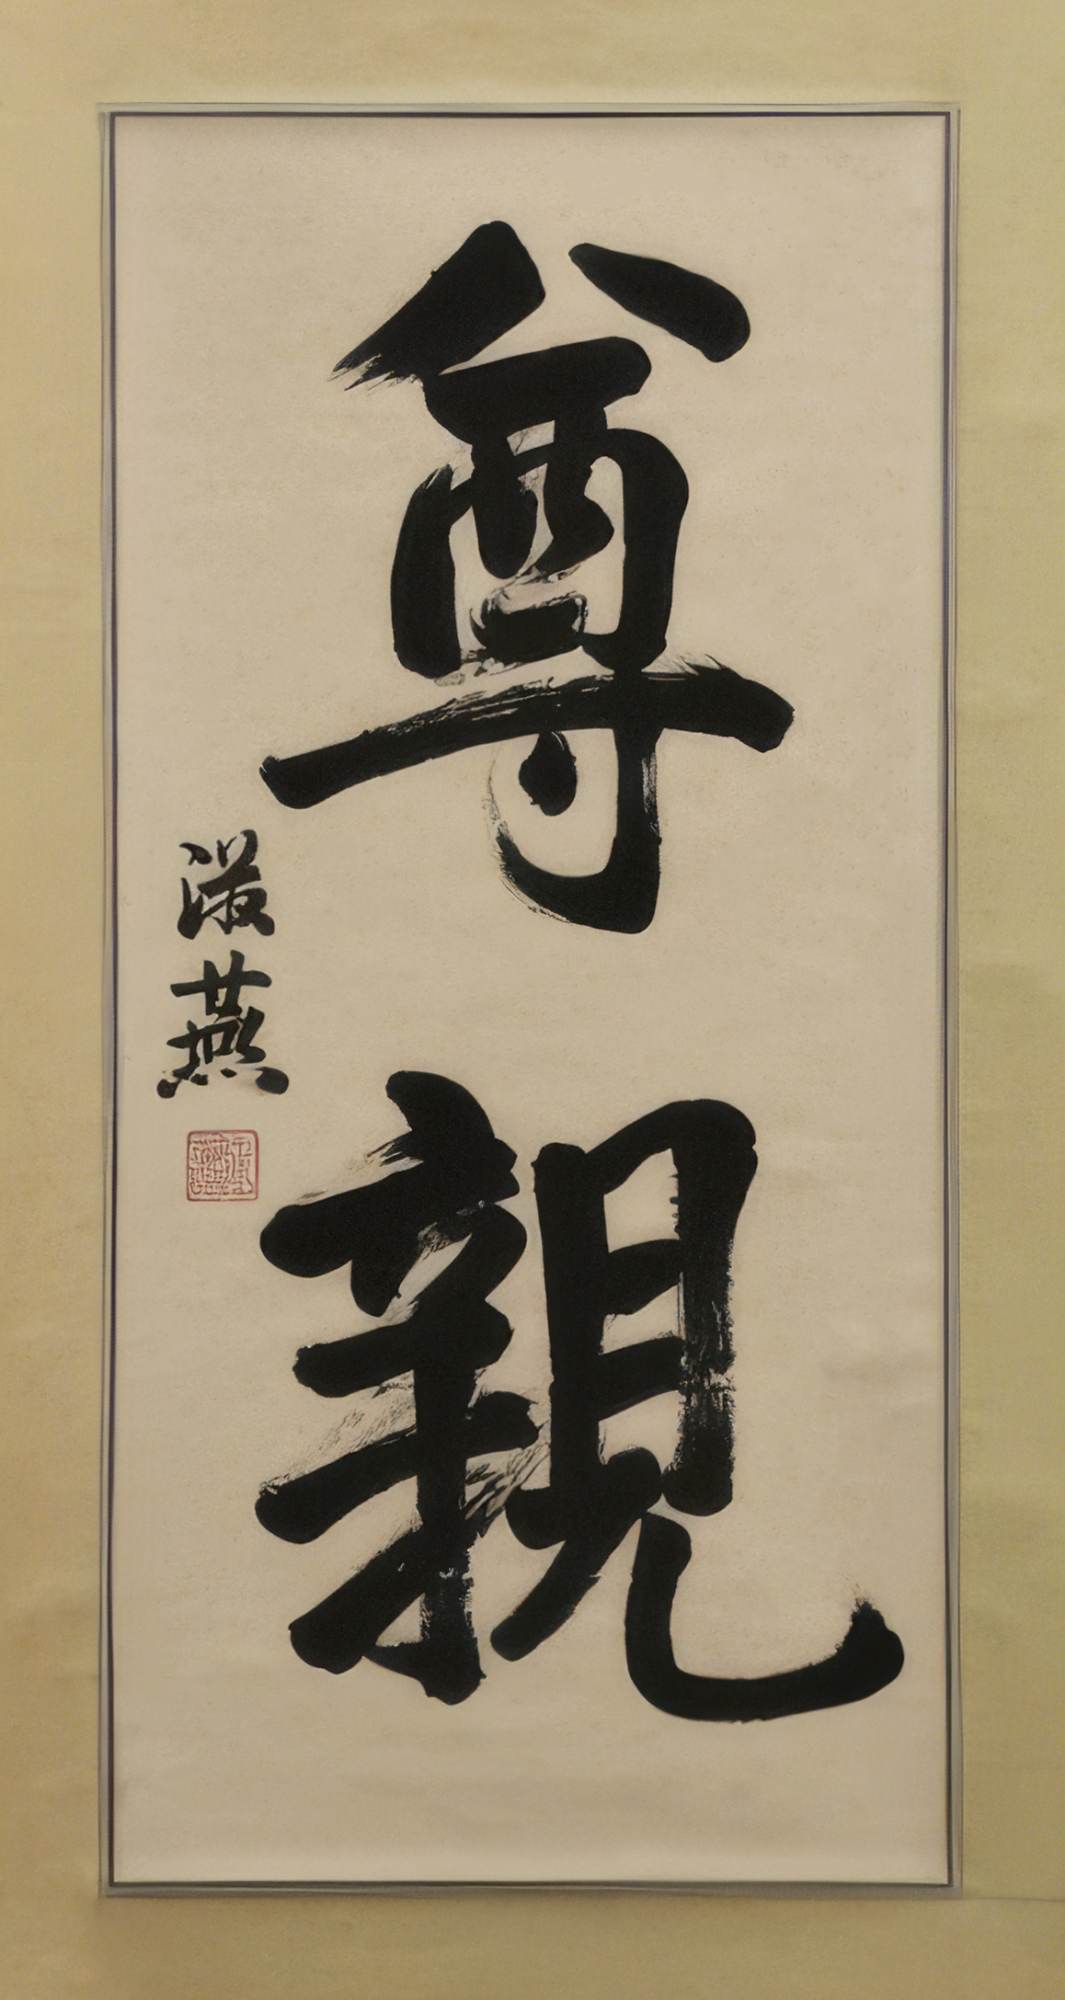 尊親
淑燕